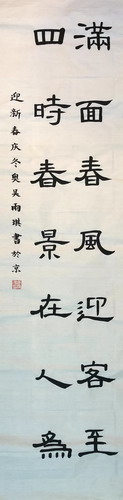 滿面春風迎客至
四時春景在人為
迎新春庆冬奥吴雨琪書於京